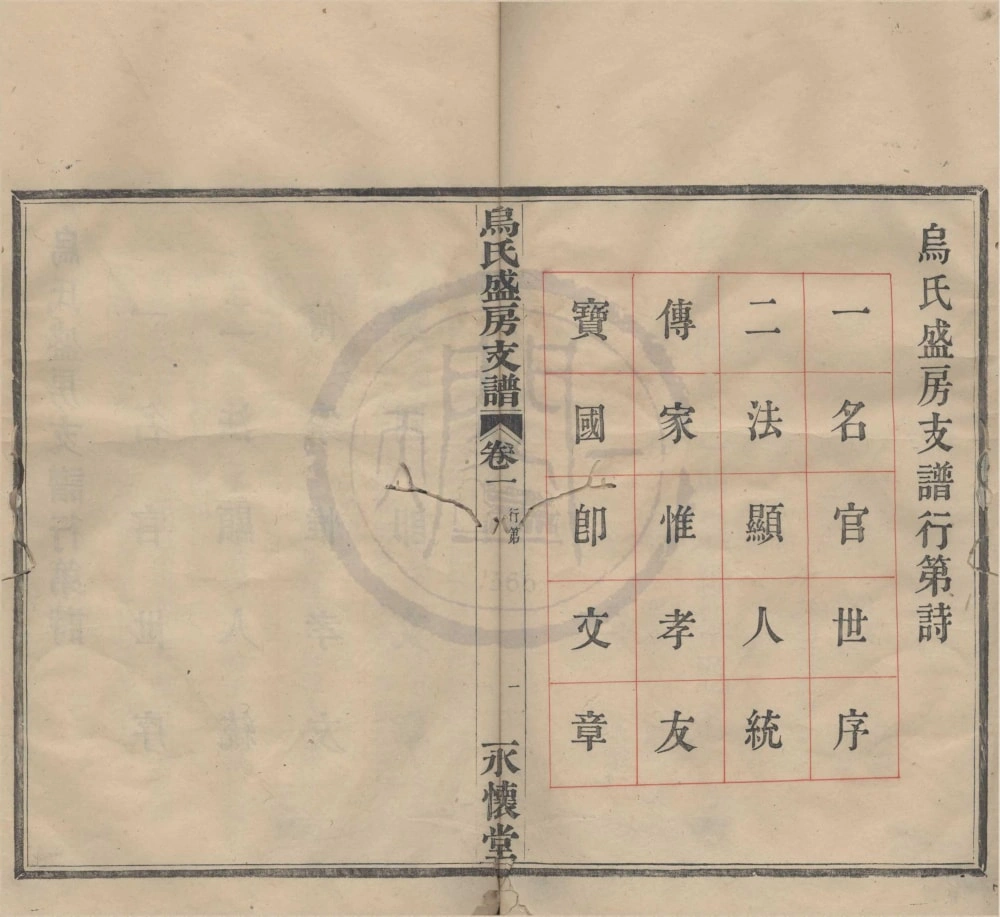 烏氏盛房支譜行第詩
一名官世序
二法顯人統
傳家惟孝友
寶國卽文章
烏氏盛房支譜
卷一
行第
一
永懷堂